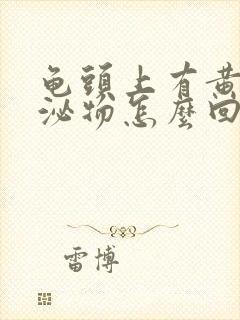 龟頭上有黄
泌物怎麼回
雷博